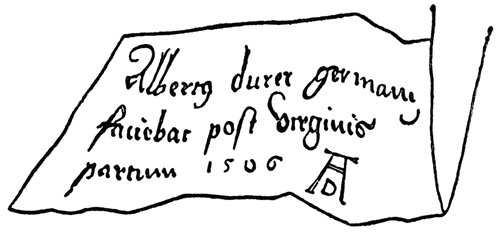 Albertꝰ durer germanꝰ
faciebat post Virginis
partum 1506 AD